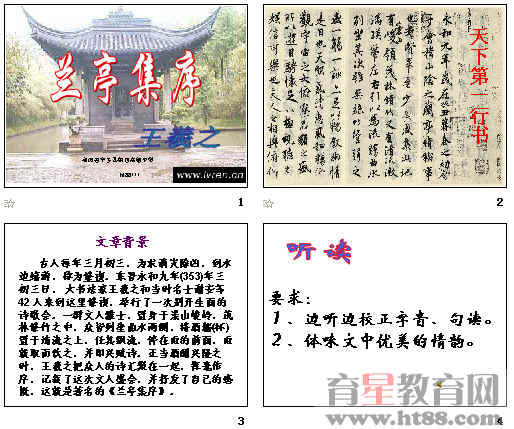 兰亭集序
王羲之
1
天下第一行书
永和九年歲在癸丑暮春之初會
于會稽山陰之蘭亭脩稧事
也羣賢畢至少長咸集此地
有崇山峻領茂林脩竹又有清流激
湍暎帶左右引以為流觴曲水
列坐其次雖無絲竹管弦之
盛一觴一詠亦足以暢敘幽情
是日也天朗氣清惠風和暢仰
觀宇宙之大俯察品類之盛
所以遊目騁懷足以極視聽之
娛信可樂也夫人之相與俯仰
2
文章背景
古人每年三月初三，为求消灾除凶，到水
边嬉游，称为修禊。东晋永和九年(353)年三
初三日，大书法家王羲之和当时名士谢安等
42人来到这里修禊，举行了一次别开生面的
诗歌会。一群文人雅士，置身于崇山峻岭，茂
林修竹之中，众皆列坐曲水两侧，将酒觞(杯)
置于清流之上，任其飘流，停在谁的前面，谁
就取而饮之，并即兴赋诗。正当酒酣兴隆之
时，王羲之把众人的诗汇聚在一起，挥毫作
序，记叙了这次文人盛会，并抒发了自己的感
慨，这就是著名的《兰亭集序》。
3
听读
要求：
1、边听边校正字音、句读。
2、体味文中优美的情韵。
4
育星教育网
www.ht88.com